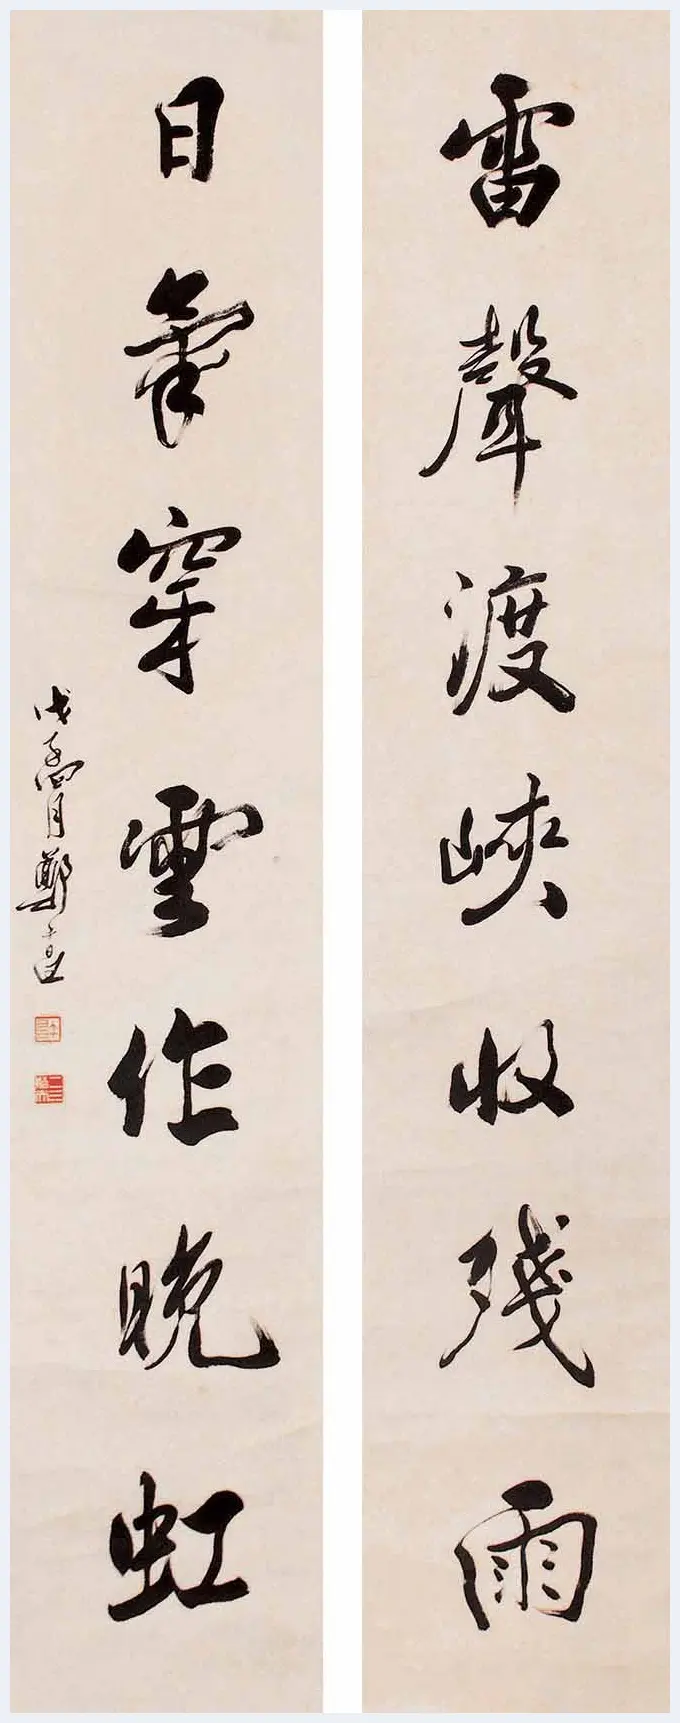 雷聲渡峽收殘雨
日氣穿雲作晚虹
戊子四月鄭